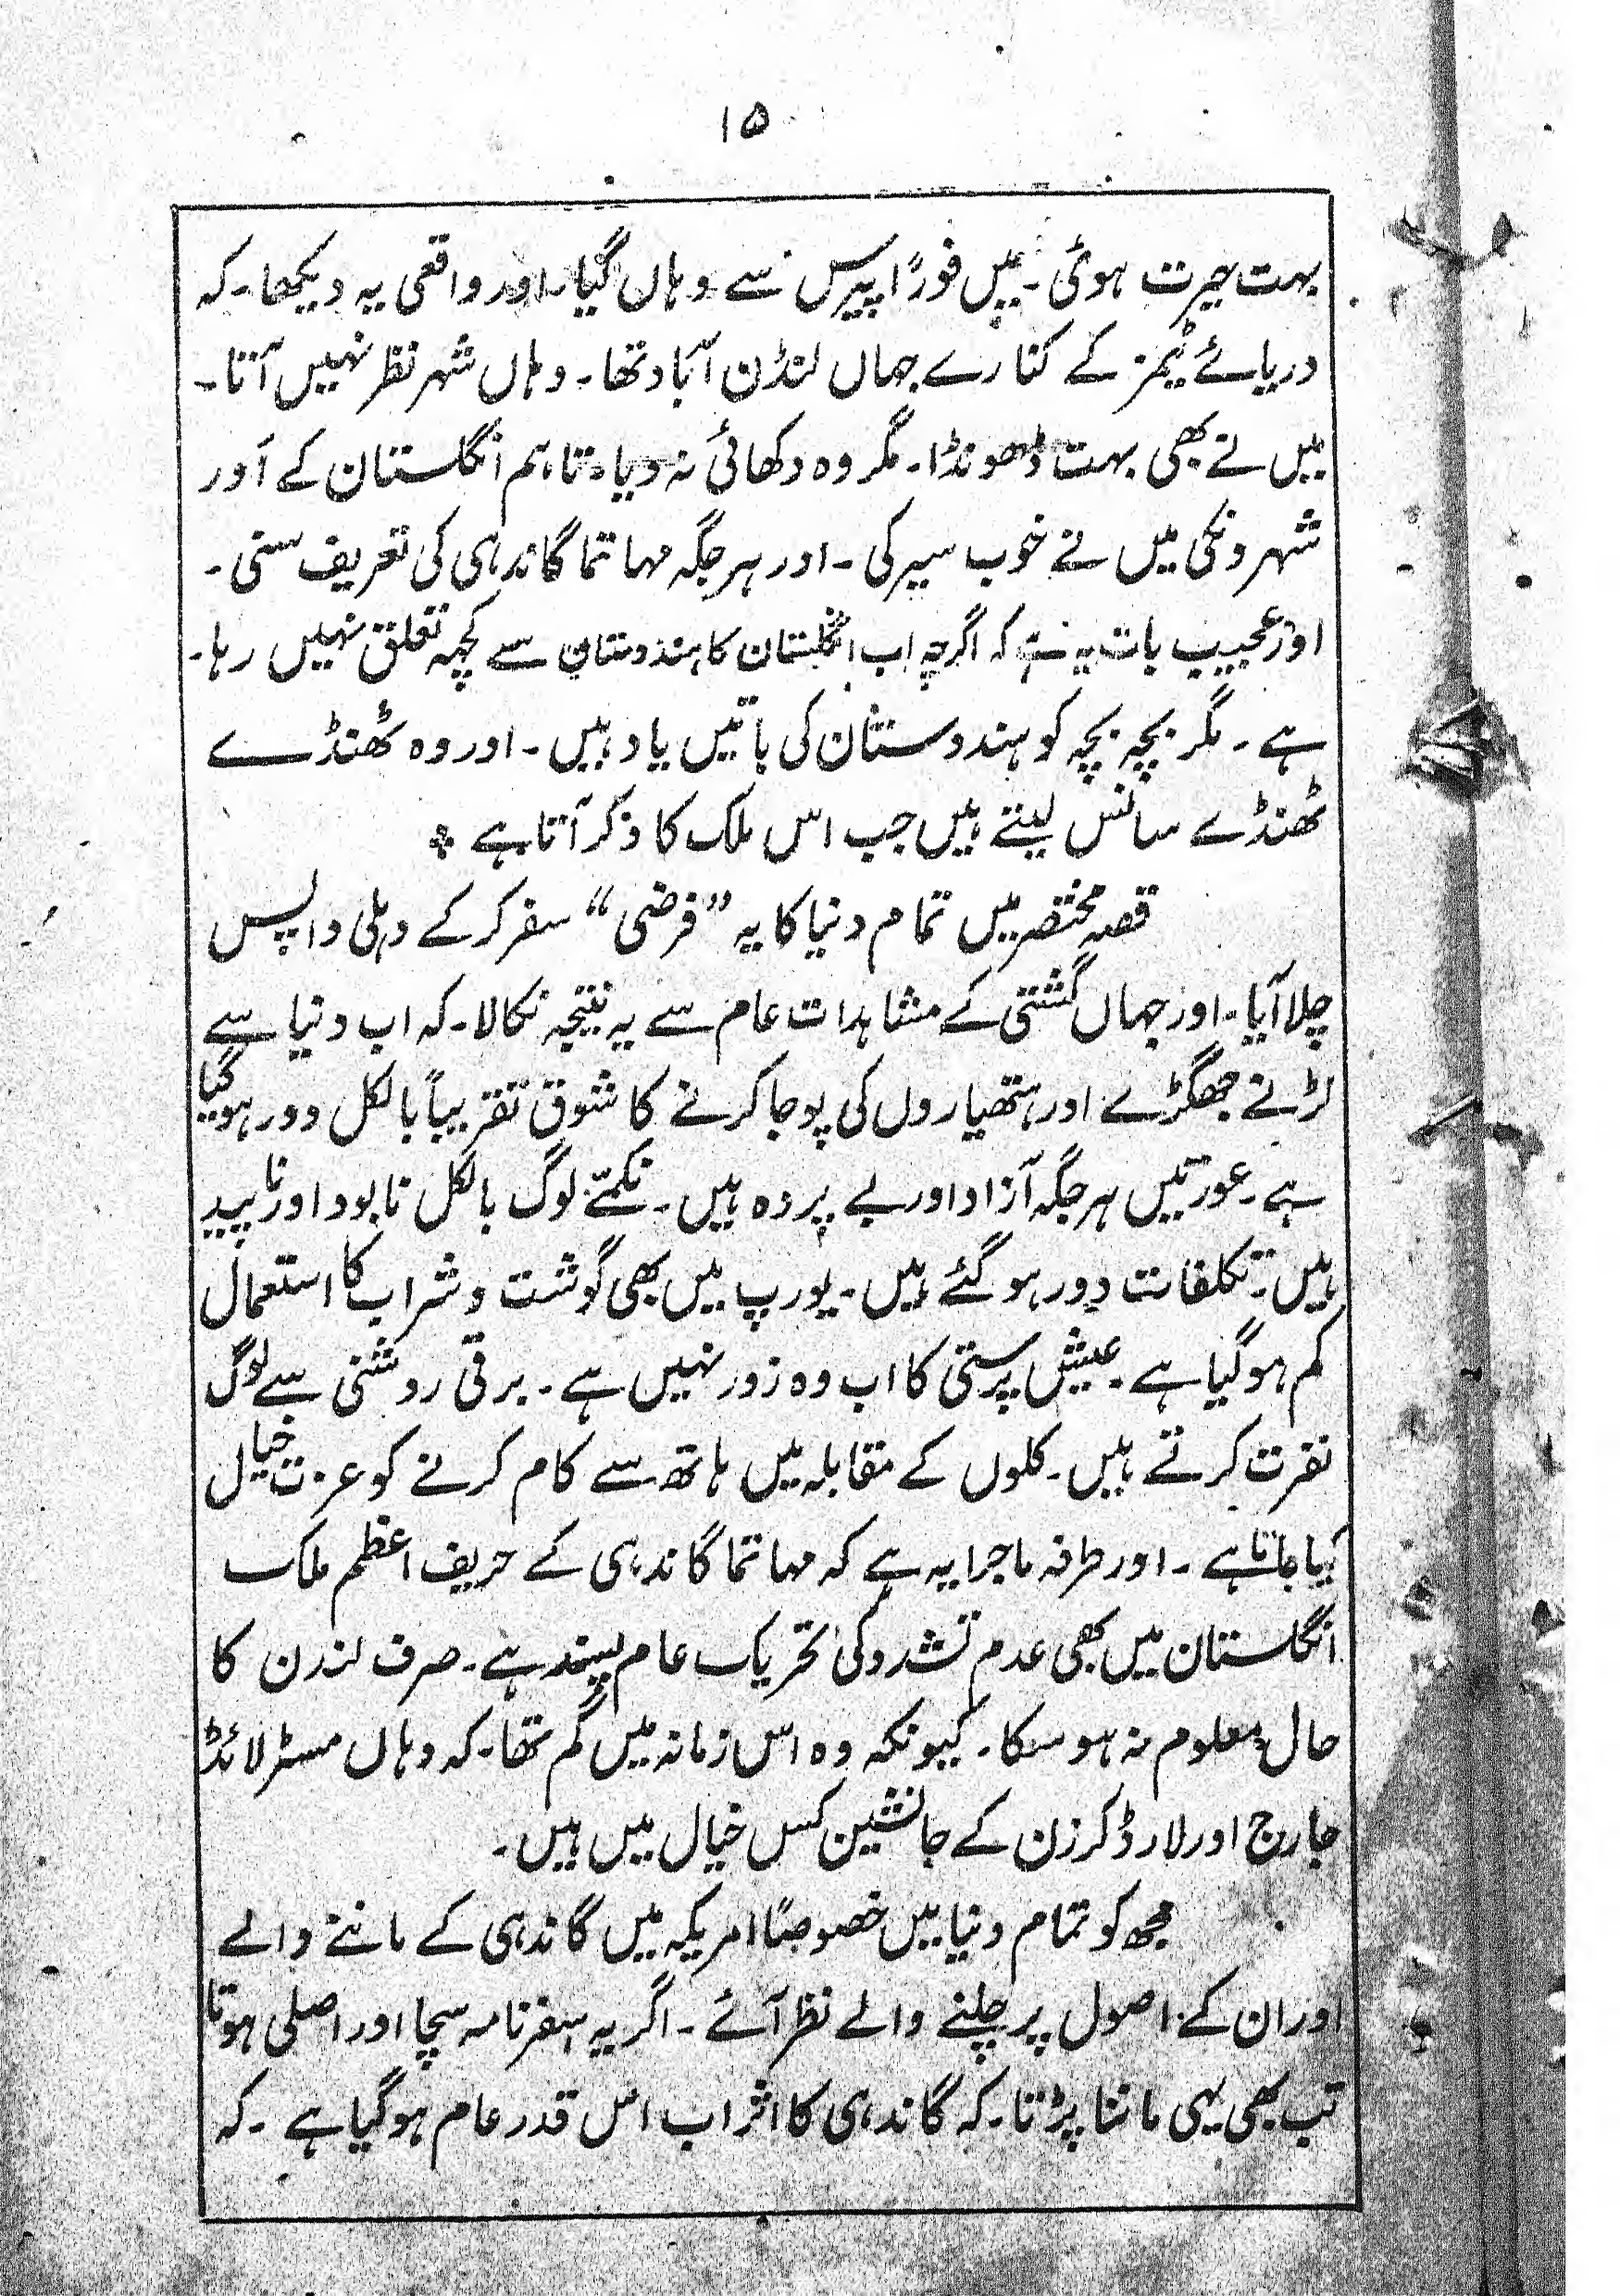 ۱۵
بہت حیرت ہوئی۔ میں فوراً پیرس سے وہاں گیا۔ اور واقعی یہ دیکھا۔ کہ
دریائے ٹیمز کے کنارے جہاں لنڈن آباد تھا۔ وہاں شہر نظر نہیں آتا۔
میں نے بھی بہت ڈھونڈا۔ مگر وہ دکھائی نہ دیا۔ تاہم انگلستان کے اَور
شہرونکی میں نے خوب سیر کی۔ اور ہر جگہ مہاتما گاندہی کی تعریف سنی۔
اور عجیب بات یہ ہے کہ اگرچہ اب انگلستان کا ہندوستان سے کچھ تعلق نہیں رہا۔
ہے۔ مگر بچہ بچہ کو ہندوستان کی باتیں یاد ہیں۔ اور وہ ٹھنڈے
ٹھنڈے سانس لیتے ہیں جب اس ملک کا ذکر آتا ہے ٭
قصہ مختصر میں تمام دنیا کا یہ ”فرضی“ سفر کر کے دہلی واپس
چلا آیا۔ اور جہاں گشتی کے مشاہدات عام سے یہ نتیجہ نکالا۔ کہ اب دنیا سے
لڑنے جھگڑے اور ہتھیاروں کی پوجا کرنے کا شوق تقریباً بالکل دور ہو گیا
ہے۔ عورتیں ہر جگہ آزاد اور بے پردہ ہیں۔ نکمّے لوگ بالکل نابود اور ناپید
ہیں۔ تکلفات دور ہو گئے ہیں۔ یورپ میں بھی گوشت و شراب کا استعمال
کم ہو گیا ہے۔ عیش پرستی کا اب وہ زور نہیں ہے۔ برقی روشنی سے لوگ
نفرت کرتے ہیں۔ کلوں کے مقابلہ میں ہاتھ سے کام کرنے کو عزت خیال
کیا جاتا ہے۔ اور طرفہ ماجرا یہ ہے کہ مہاتما گاندہی کے حریف اعظم ملک
انگلستان میں بھی عدم تشدد کی تحریک عام پسند ہے۔ صرف لندن کا
حال معلوم نہ ہو سکا۔ کیونکہ وہ اس زمانہ میں گم تھا۔ کہ وہاں مسٹر لائڈ
جارج اور لارڈ کرزن کے جانشین کس خیال میں ہیں۔
مجھ کو تمام دنیا میں خصوصاً امریکہ میں گاندہی کے ماننے والے
اور ان کے اصول پر چلنے والے نظر آئے۔ اگر یہ سفرنامہ سچا اور اصلی ہوتا
تب بھی یہی ماننا پڑتا۔ کہ گاندہی کا اثر اب اس قدر عام ہو گیا ہے۔ کہ